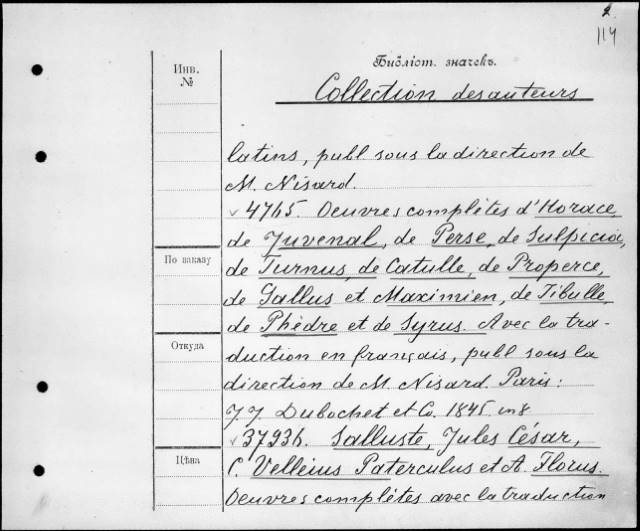 2
114
Инв.
№
Библіот. значекъ.
Collection des auteurs
latins, publ sous la direction de
M. Nisard.
v 4765. Oeuvres complètes d'Horace
de Juvenal, de Perse, de Sulpicia,
По заказу
de Turnus, de Catulle, de Properce,
de Gallus et Maximien, de Tibulle,
de Phèdre et de Syrus. Avec la tra-
Откуда
duction en français, publ sous la
direction de M. Nisard. Paris:
J. J. Dubochet et Co. 1845 in 8
v 37936. Salluste, Jules César,
Цѣна
C. Velleius Paterculus et A. Florus.
Oeuvres complètes avec la traduction